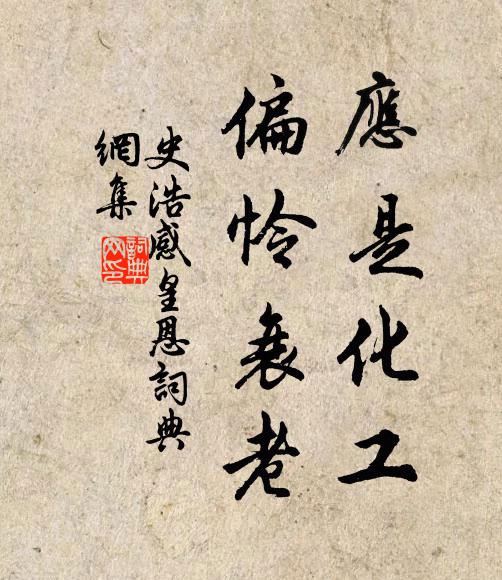 應是化工
偏怜衰老
史浩感皇恩詞典
網集
詞典
网印